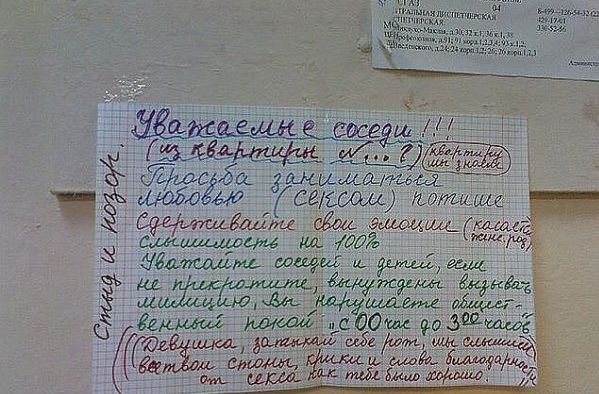 ГАЗ
04
ТРАЛЬНАЯ ДИСПЕТЧЕРСКАЯ
8-499--126-54-32 (22
ПЕТЧЕРСКАЯ
429-17-01
330-52-56
Администр
Уважаемые соседи!!!
(из квартиры №...?) (квартиру мы знаем)
Просьба заниматься
любовью (сексом) потише
Сдерживайте свои эмоции (касается женс. род)
слышимость на 100%
Уважайте соседей и детей, если
не прекратите, вынуждены вызывать
милицию, Вы нарушаете общест-
венный покой "с 00 час до 3 00 часов"
(Девушка, затыкай себе рот, мы слышим
все твои стоны, крики и слова благодарности
от секса как тебе было хорошо.
Стыд и позор.